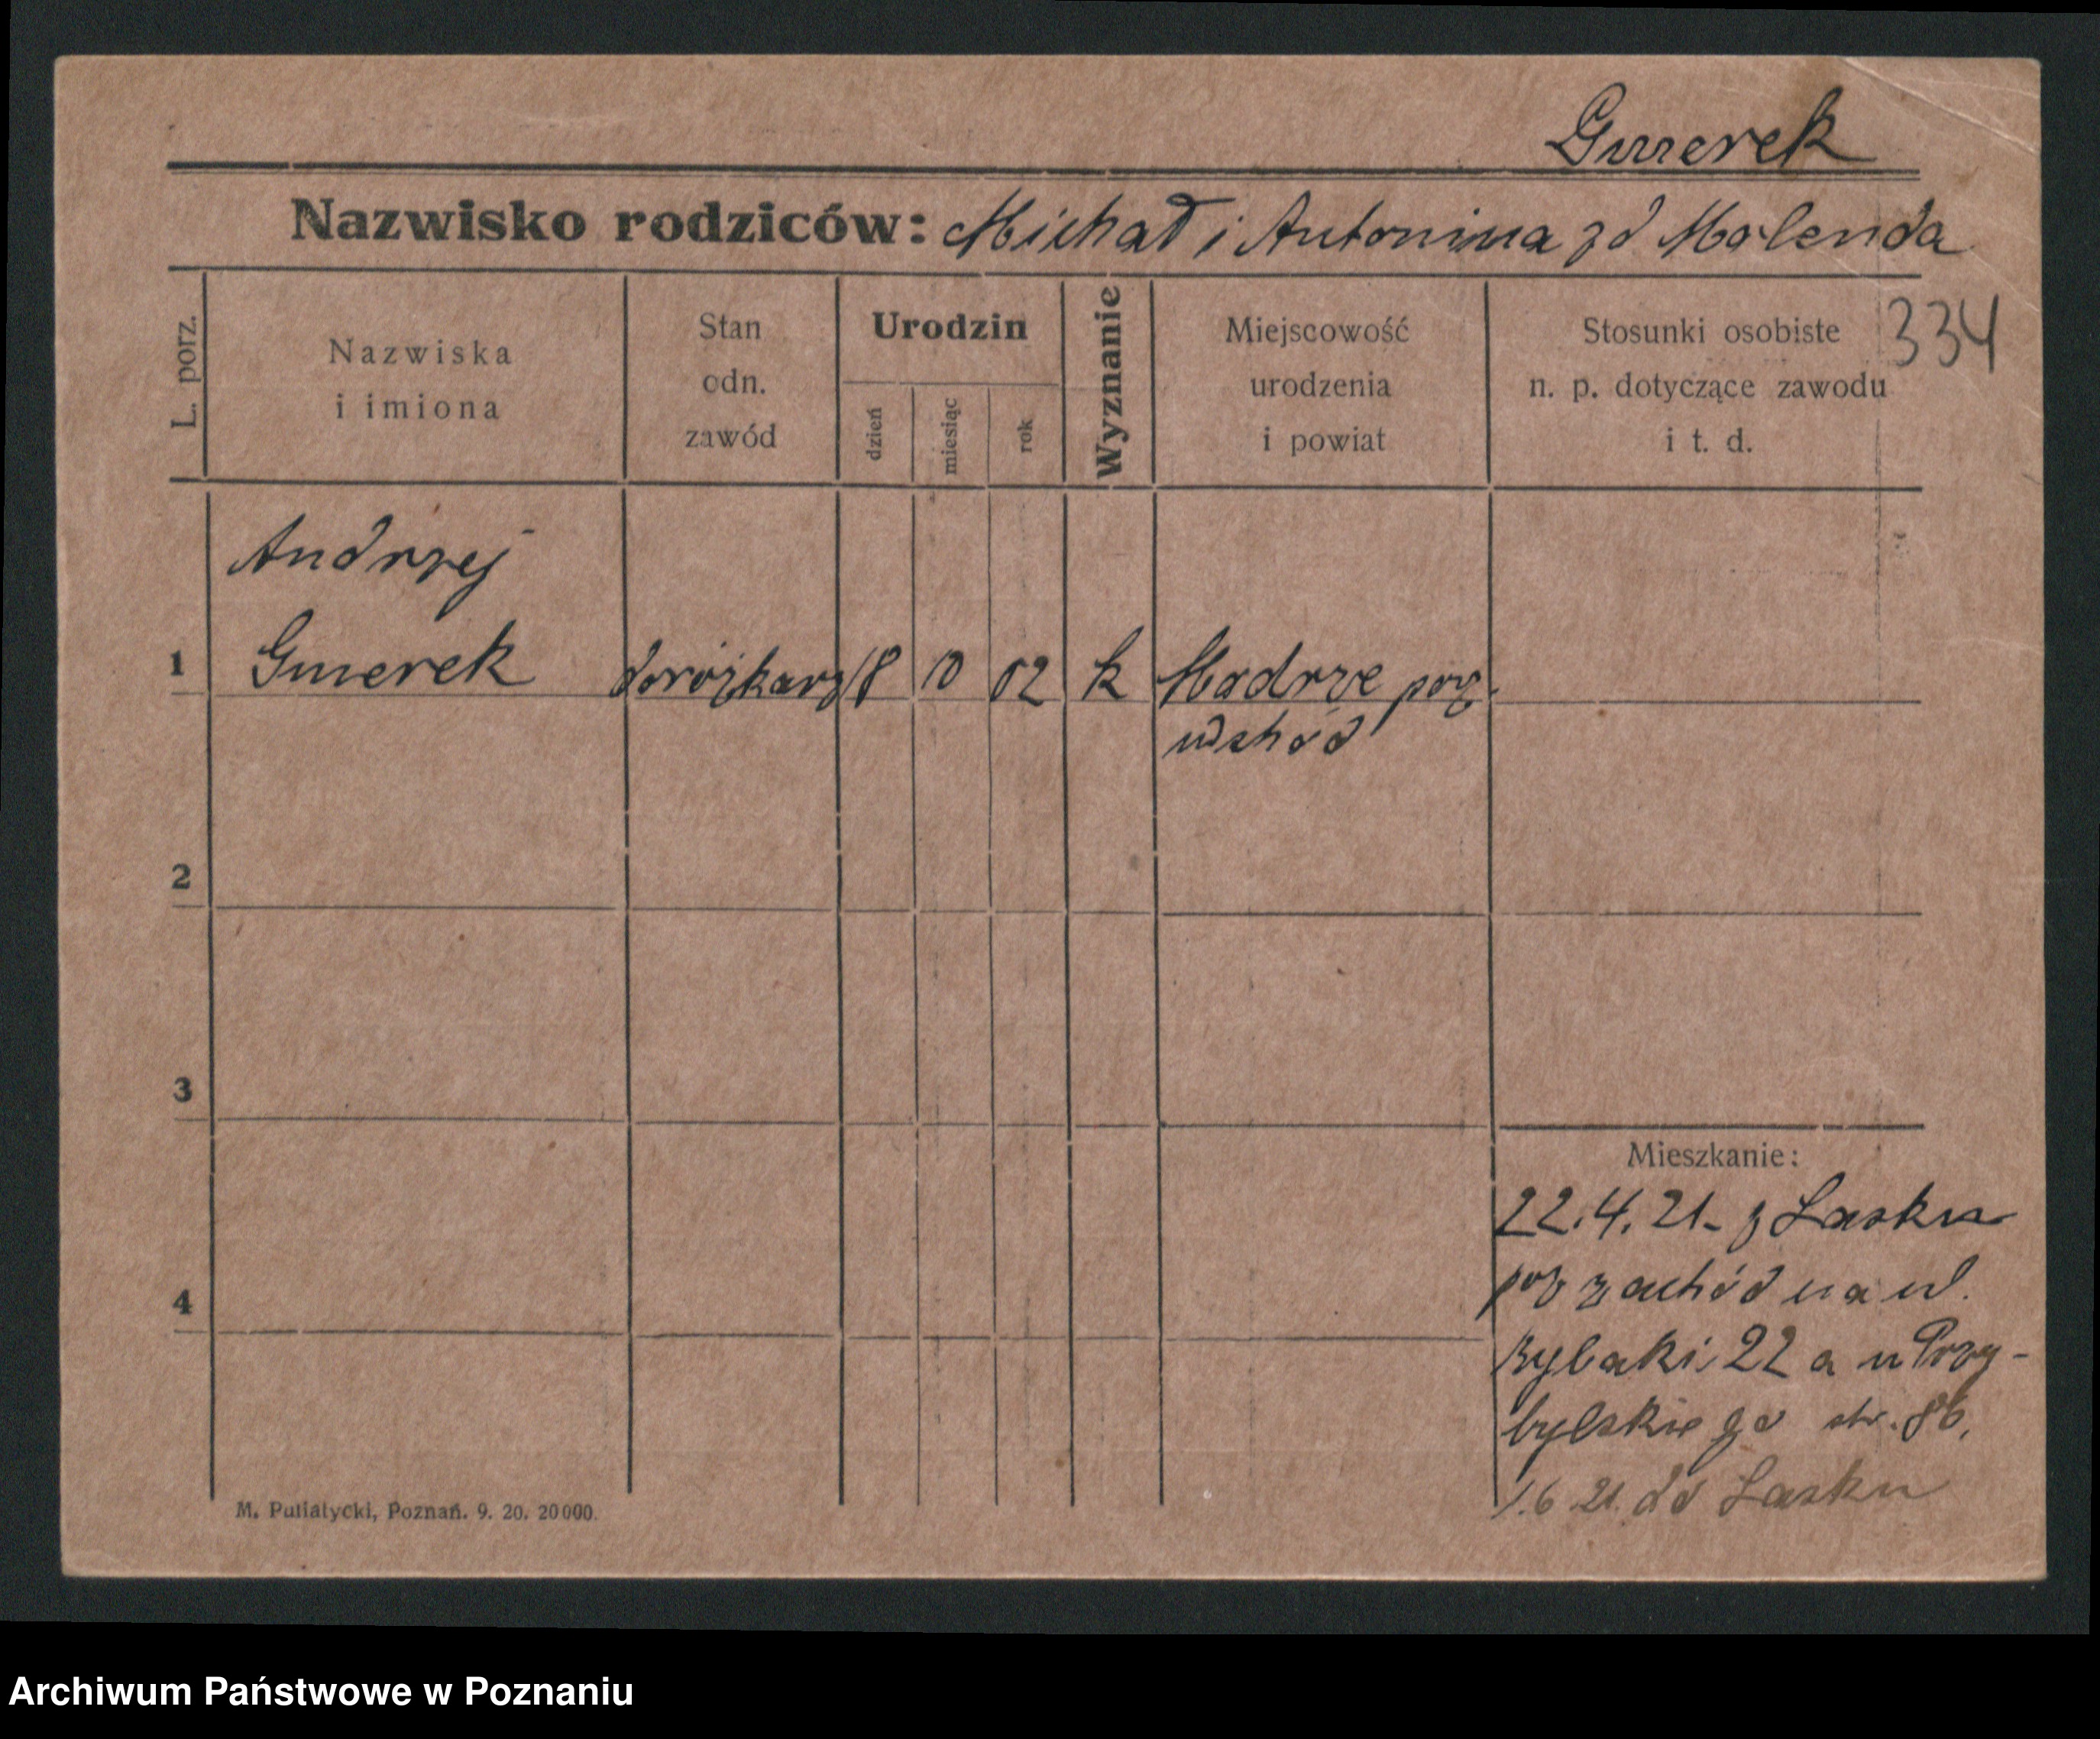 Gmerek
Nazwisko rodziców: Michał i Antonina zd Molenda
334
L. porz.
Nazwiska
i imiona
Stan
odn.
zawód
Urodzin
dzień
miesiąc
rok
Wyznanie
Miejscowość
urodzenia
i powiat
Stosunki osobiste
n. p. dotyczące zawodu
i t. d.
Andrzej
1 Gmerek dorożkarz 18 10 02 k Modrze poz.
wschód
2
3
4
Mieszkanie:
22.4.21 - z Lasku
poz zachód na ul.
Rybaki 22 a u Przy-
bylskiego str. 86,
1.6.21. do Lasku
M. Putiatycki, Poznań. 9. 20. 20000.
Archiwum Państwowe w Poznaniu